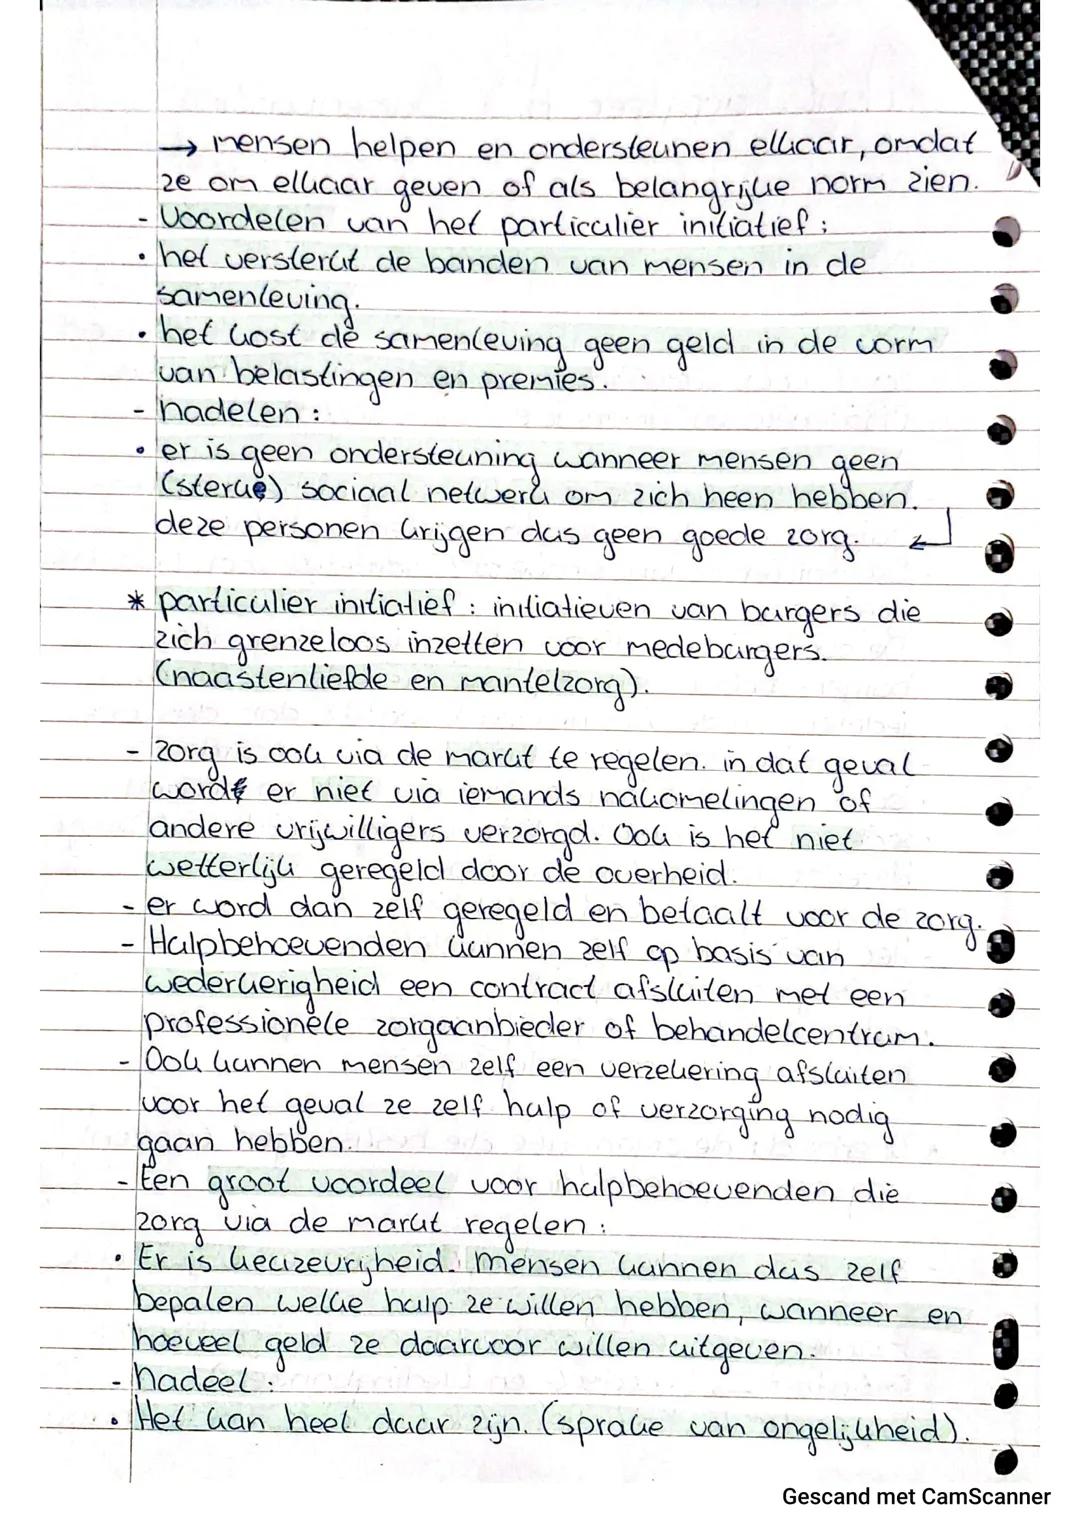 → mensen helpen en ondersteunen elkaar, omdat
ze om elkaar geven of als belangrijke norm zien.
- Voordelen van het particulier initiatief :
• het versterkt de banden van mensen in de
samenleving.
• het kost de samenleving geen geld in de vorm
van belastingen en premies.
- nadelen :
• er is geen ondersteuning wanneer mensen geen
(sterke) sociaal netwerk om zich heen hebben.
deze personen krijgen dus geen goede zorg. ↵
* particulier initiatief : initiatieven van burgers die
zich grenzeloos inzetten voor medeburgers.
(naastenliefde en mantelzorg).
- zorg is ook via de markt te regelen. in dat geval
word er niet via iemands nakomelingen of
andere vrijwilligers verzorgd. Ook is het niet
wetterlijk geregeld door de overheid.
- er word dan zelf geregeld en betaalt voor de zorg.
- Hulpbehoevenden kunnen zelf op basis van
wederkerigheid een contract afsluiten met een
professionele zorgaanbieder of behandelcentrum.
- Ook kunnen mensen zelf een verzekering afsluiten
voor het geval ze zelf hulp of verzorging nodig
gaan hebben.
- Een groot voordeel voor hulpbehoevenden die
zorg via de markt regelen :
• Er is keuzevrijheid. Mensen kunnen dus zelf
bepalen welke hulp ze willen hebben, wanneer en
hoeveel geld ze daarvoor willen uitgeven.
- nadeel :
• Het kan heel duur zijn. (sprake van ongelijkheid).
Gescand met CamScanner